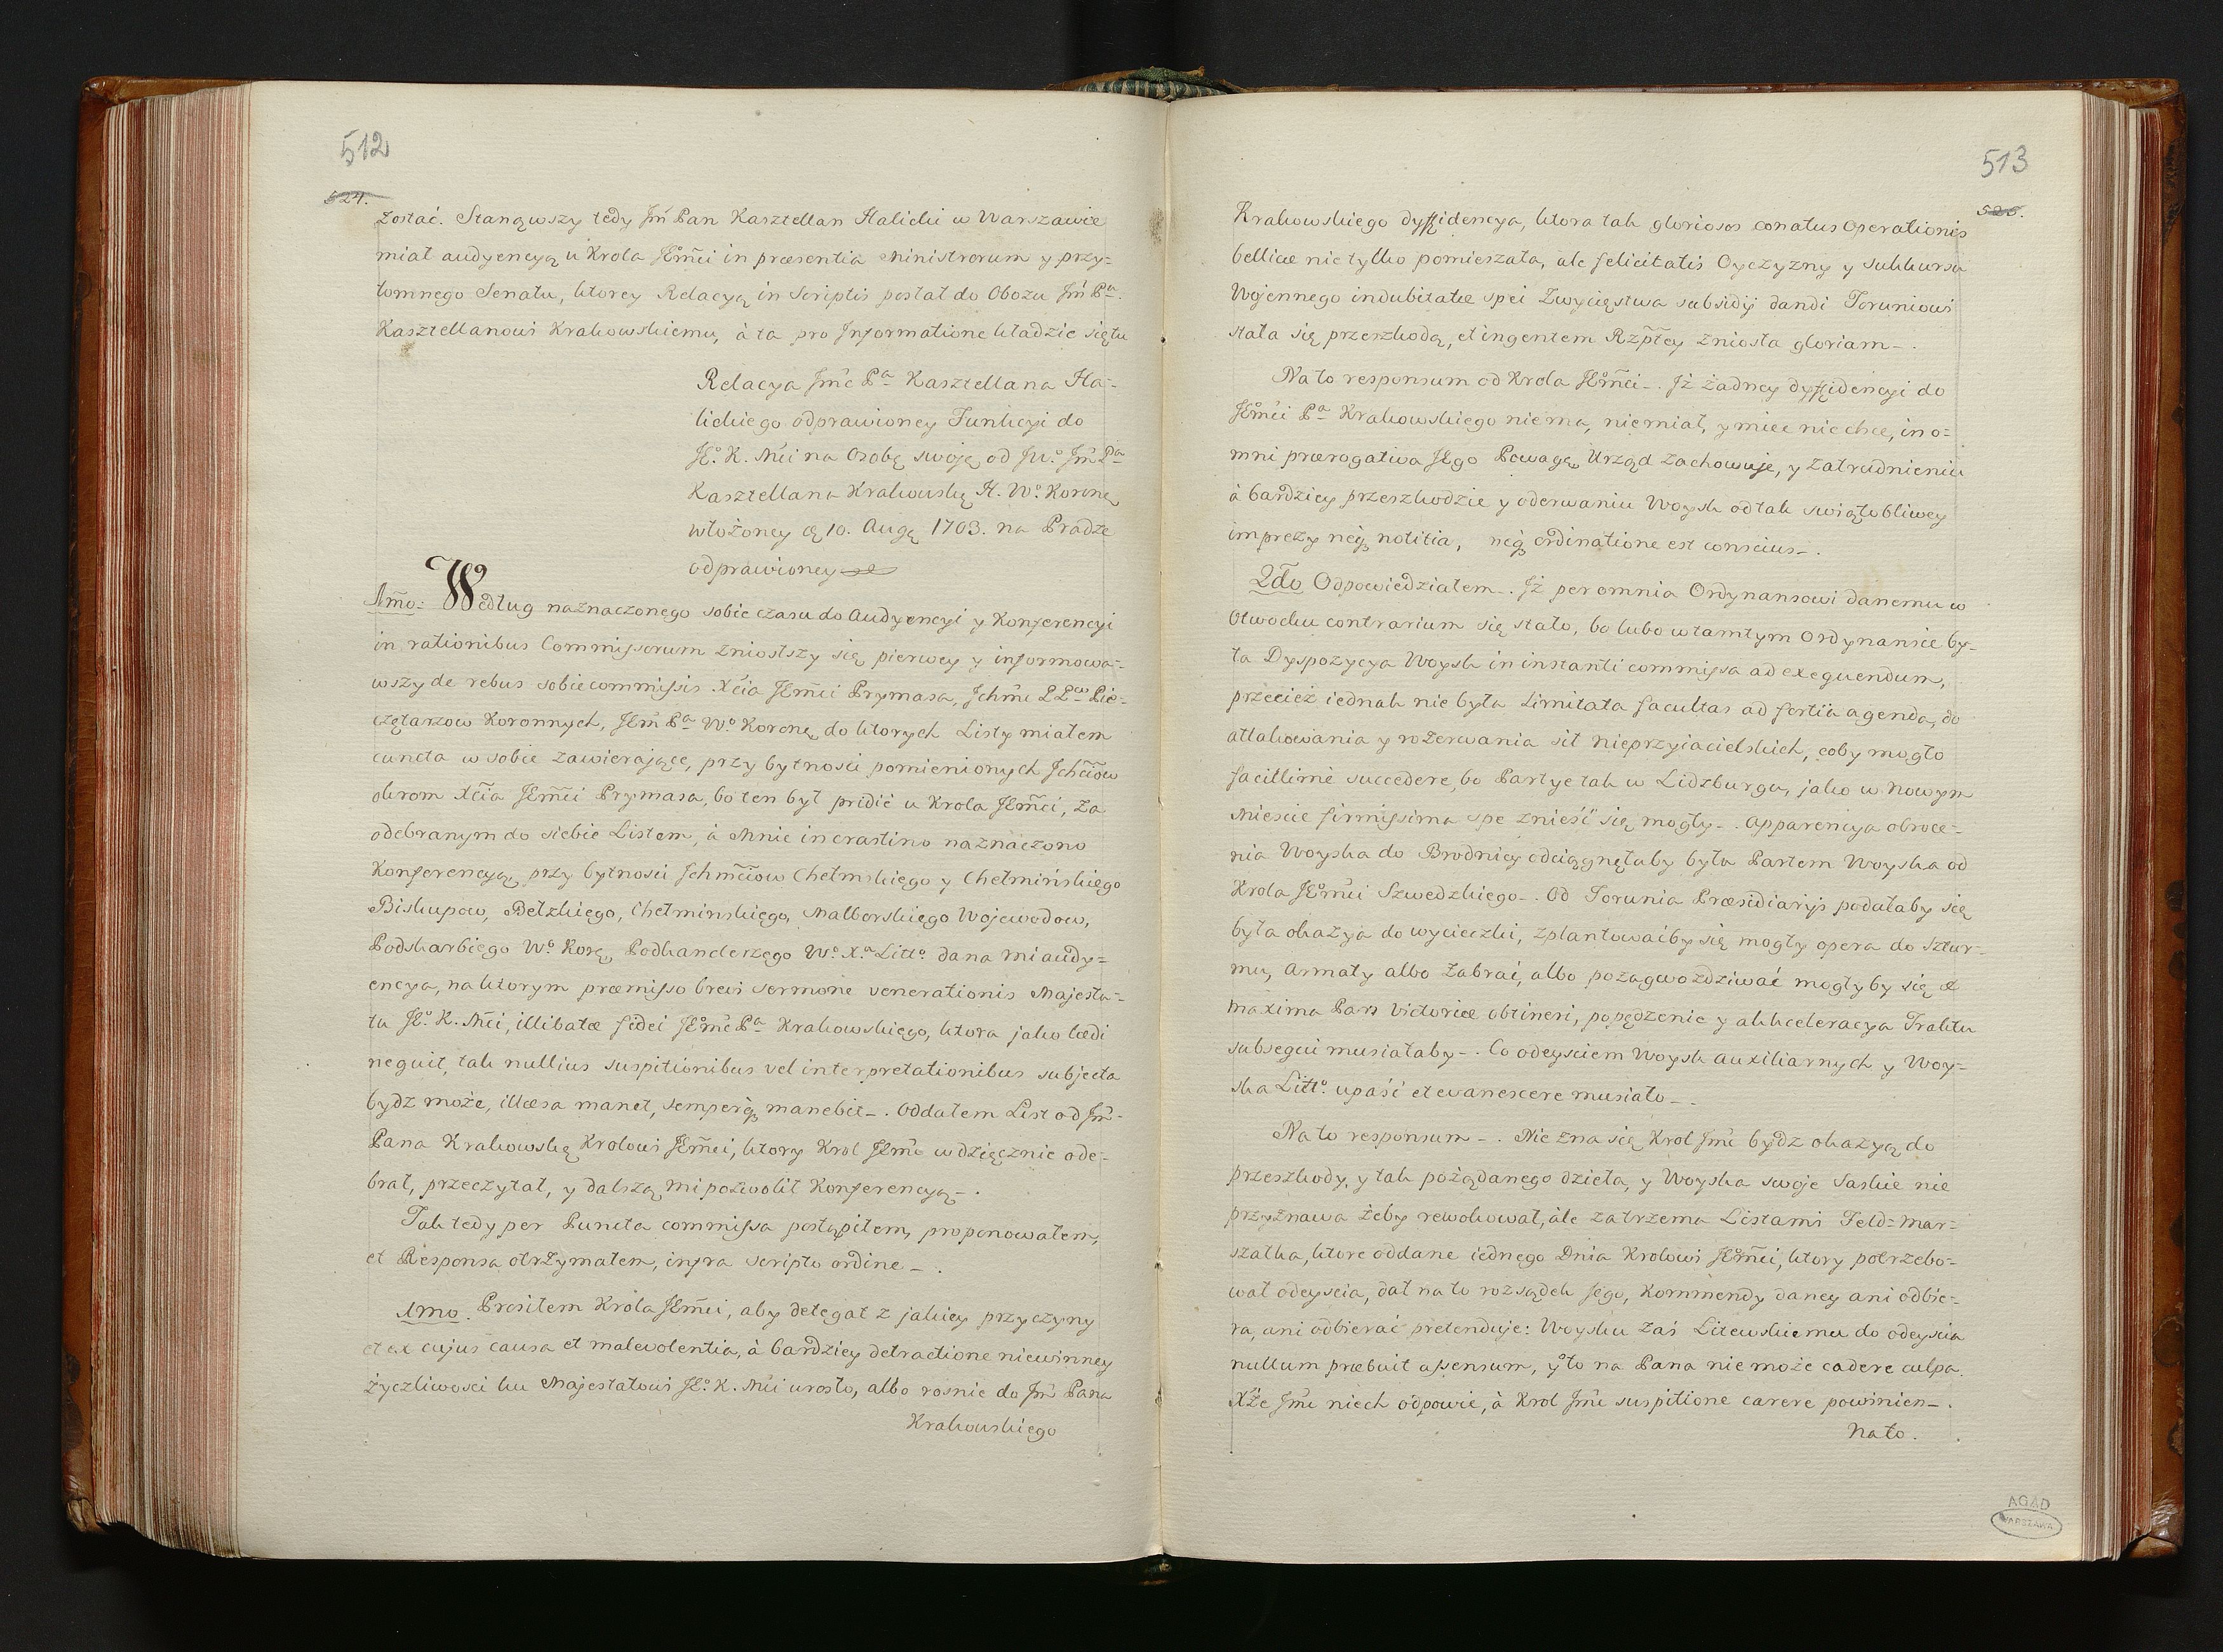 512
524.
zostać. Stanąwszy tedy Jm̃ Pan Kasztellan Halicki w Warszawie
miał audyencyą u Krola JEm̃ci in præsentia Ministrorum y przy=
tomnego Senatu, ktorey Relacyą in Scriptis posłał do Obozu Jm̃ Pᵃ.
Kasztellanowi Krakowskiemu, à ta pro Informatione kładzie się tu
Relacya Jm̃c Pᵃ Kasztellana Ha=
lickiego odprawioney Funkcyi do
JEº. K. Mći na Osobę swoję od JWº. Jm̃ Pᵃ
Kasztellana Krakowskę H. Wº. Koronę
włożoney dę 10. Augę 1703. na Pradze
odprawioney
1m̃o. Według naznaczonego sobie czasu do Audyencyi y Konferencyi
in rationibus Commissorum zniosłszy się pierwey y informowa=
wszy de rebus sobie commissis Xcia JEm̃ci Prymasa, Ichm̃c PPᵒʷ Pie=
częтarzow Koronnych, JEm̃ Pᵃ Wº Koronę, do ktorych Listy miałem
cuncta w sobie zawierające, przy bytnosci pomienionych Ichćiow
okrom Xcia JEm̃ci Prymasa, bo ten był pridie u Krola JEm̃ci, za
odebranym do siebie Listem, à Mnie in crastino naznaczono
Konferencyą, przy bytnosci Ichm̃ciow Chełmskiego y Chełmińskiego
Biskupow, Bełzkiego, Chełminskiego, Malborskiego Wojewodow,
Podskarbiego Wº. Korę, Podkanclerzego Wº. Xᵃ Littº. dana mi audy=
encya, na ktorym præmisso brevi sermone venerationis Majesta=
tu JEº. K. Mći, illibatæ fidei JEm̃c Pᵃ Krakowskiego, ktora jako lædi
nequit, tak nullius suspitionibus vel interpretationibus subjecta
bydz może, illæsa manet, semperq́ manebit_. Oddałem List od Jm̃=
Pana Krakowskę Krolowi JEm̃ci, ktory Krol JEm̃c wdzięcznie ode=
brał, przeczytał, y dalszą mi pozwolił Konferencyą_.
Tak tedy per Puncta commissa postąpiłem, proponowałem,
et Responsa otrzymałem, infra scripto ordine_.
1mo. Prosiłem Krola JEm̃ci, aby detegat z jakiey przyczyny
et ex cujus causa et malevolentia, à bardziey detractione niewinney
życzliwosci ku Majestatowi JEº. K. Mći urosło, albo rosnie do Jm̃ Pana
Krakowskiego
513
525.
Krakowskiego dyffidencya, ktora tak gloriosos conatus Operationis
bellicæ nie tylko pomieszała, ale felicitatis Oyczyzny y sukkursu
Wojennego indubitatæ spei Zwycięstwa subsidij dandi Toruniowi
stała się przeszkodą, et ingentem Rzp̃tey zniosła gloriam_.
Na to responsum od Krola JEm̃ci_. Jż żadney dyffidencyi do
JEm̃ci Pᵃ Krakowskiego niema, niemiał, y miec niechce, in o=
mni prærogativa Jego Powagę, Urząd zachowuje, y zatrudnieniu
à bardziey przeszkodzie y oderwaniu Woysk od tak swiątobliwey
imprezy neq́ notitia, neq́ ordinatione est conscius_.
2do Odpowiedziałem_. Jż per omnia Ordynansowi danemu w
Otwocku contrarium się stało, bo lubo w tamtym Ordynansie by=
ła Dyspozycya Woysk in instanti commissa ad exequendum,
przecież iednak nie była Limitata facultas ad fortia agenda, do
attakowania y rozerwania sił nieprzyiacielskich, coby mogło
facillimè succedere, bo Partye tak w Lidzburgu, jako w Nowym
Miescie firmissima spe znieść się mogły_. Apparencya obroce=
nia Woyska do Brodnicy odciągnęłaby była Partem Woyska od
Krola JEm̃ci Szwedzkiego_. Od Torunia Præsidiarijs podałaby się
była okazya do wycieczki, zplantowaćby się mogły opera do Sztur=
mu, Armaty albo zabrać, albo pozagwozdziwać mogłyby się et
maxima Pars Victoriæ obtineri, popędzenie y akkceleracya Traktu
subsequi musiałaby_. Co odeysciem Woysk auxiliarnych y Woy=
ska Littº. upaść et evanescere musiało_.
Na to responsum_. Nie zna się Krol Jm̃c bydz okazyą do
przeszkody, y tak pożądanego dzieła, y Woyska swoje Saskie nie
przyznawa żeby rewokował, ale za trzema Listami Feld=mar=
szałka, ktore oddane iednego Dnia Krolowi JEm̃ci, ktory potrzebo=
wał odeyscia, dał na to rozsądek Jego, Kommendy daney ani odbie=
ra, ani odbierać pretenduje: Woysku zaś Litewskiemu do odeyscia
nullum præbuit assensum, y to na Pana nie może cadere culpa.
Xże Jm̃c niech odpowie, à Krol Jm̃c suspitione carere powinien_.
Na to.
AGAD
WARSZAWA